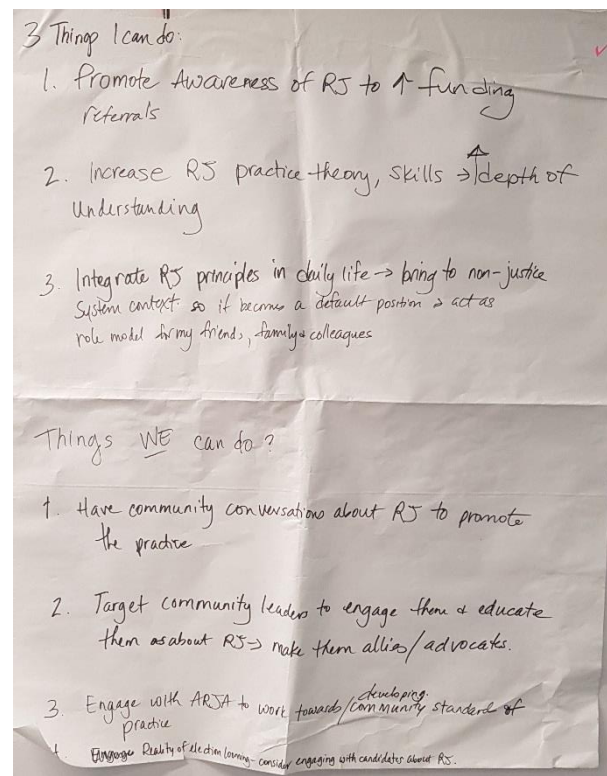 3 Things I can do:
1. Promote Awareness of RJ to ↑ funding
referrals
2. Increase RJ practice theory, skills → ↑depth of
Understanding
3. Integrate RJ principles in daily life → bring to non-justice
System context so it becomes a default position → act as
role model for my friends, family & colleagues
Things WE can do?
1. Have community conversations about RJ to promote
the practice
2. Target community leaders to engage them & educate
them as about RJ → make them allies/advocates.
developing
3. Engage with ARJA to work towards/community standard of
practice
Reality of election looming - consider engaging with candidates about RJ.